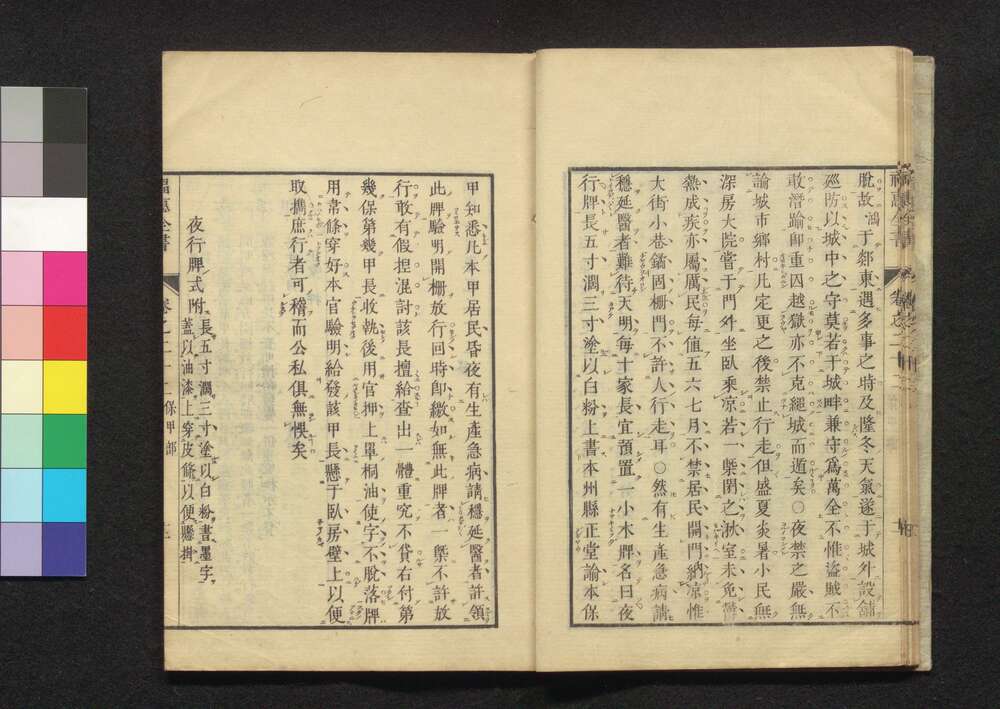 福惠全書 卷之二十二
脫故鴻于郯東遇多事之時及隆冬天氣遂于城外設舖
廵防以城中之守莫若于城畔兼守爲萬全不惟盜賊不
敢潛踰卽重囚越獄亦不克繩城而遁矣○夜禁之嚴無
論城市鄉村凡定更之後禁止行走但盛夏炎暑小民無
深房大院嘗于門外坐臥乘凉若一槩閉之湫室未免鬱
熱成疾亦屬厲民每值五六七月不禁居民開門納凉惟
大街小巷鐍固柵門不許人行走耳○然有生產急病請
穩延醫者難待天明每十家長宜預置一小木牌名曰夜
行牌長五寸濶三寸塗以白粉上書本州縣正堂諭本保
甲知悉凡本甲居民昏夜有生產急病請穩延醫者許領
此牌驗明開柵放行回時卽繳如無此牌者一槩不許放
行敢有假捏混討該長擅給查出一體重究不貸右付第
幾保第幾甲長收執後用官押上罩桐油使字不脫落牌
用常條穿好本官驗明給發該甲長懸于臥房壁上以便
取携庶行者可稽而公私俱無悞矣
夜行牌式附 長五寸濶三寸塗以白粉書墨字
蓋以油漆上穿皮條以便懸掛
福惠全書 卷之二十二 保甲部 三